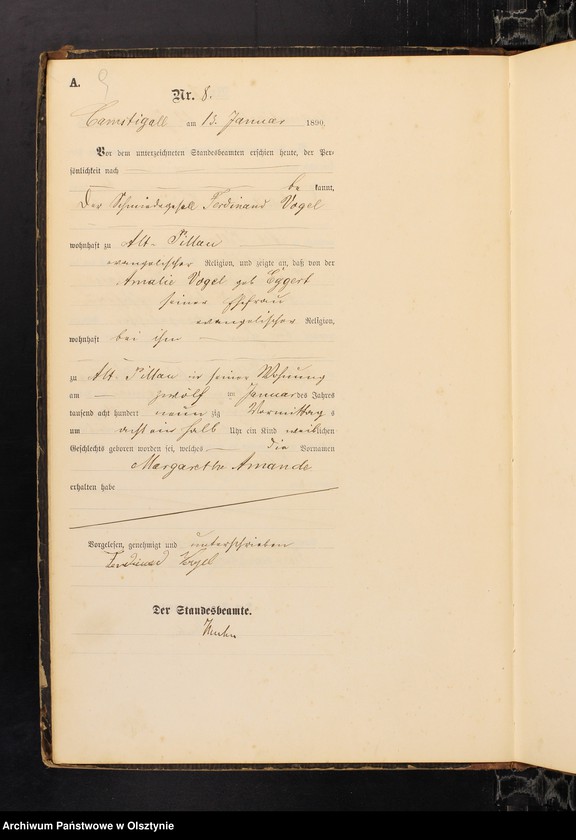 A.
Nr. 8.
Camstigall am 13. Januar 1890.
Vor dem unterzeichneten Standesbeamten erschien heute, der Per-
sönlichkeit nach
be kannt,
Der Schmiedegesell Ferdinand Vogel
wohnhaft zu Alt-Pillau
evangelischer Religion, und zeigte an, daß von der
Amalie Vogel geb Eggert
seiner Ehefrau
evangelischer Religion,
wohnhaft bei ihm
zu Alt-Pillau in seiner Wohnung
am zwölf ten Januar des Jahres
tausend acht hundert neun zig Vormittag s
um acht ein halb Uhr ein Kind weiblichen
Geschlechts geboren worden sei, welches die Vornamen
Margarethe Amande
erhalten habe
Vorgelesen, genehmigt und unterschrieben
Ferdinand Vogel
Der Standesbeamte.
Archiwum Państwowe w Olsztynie